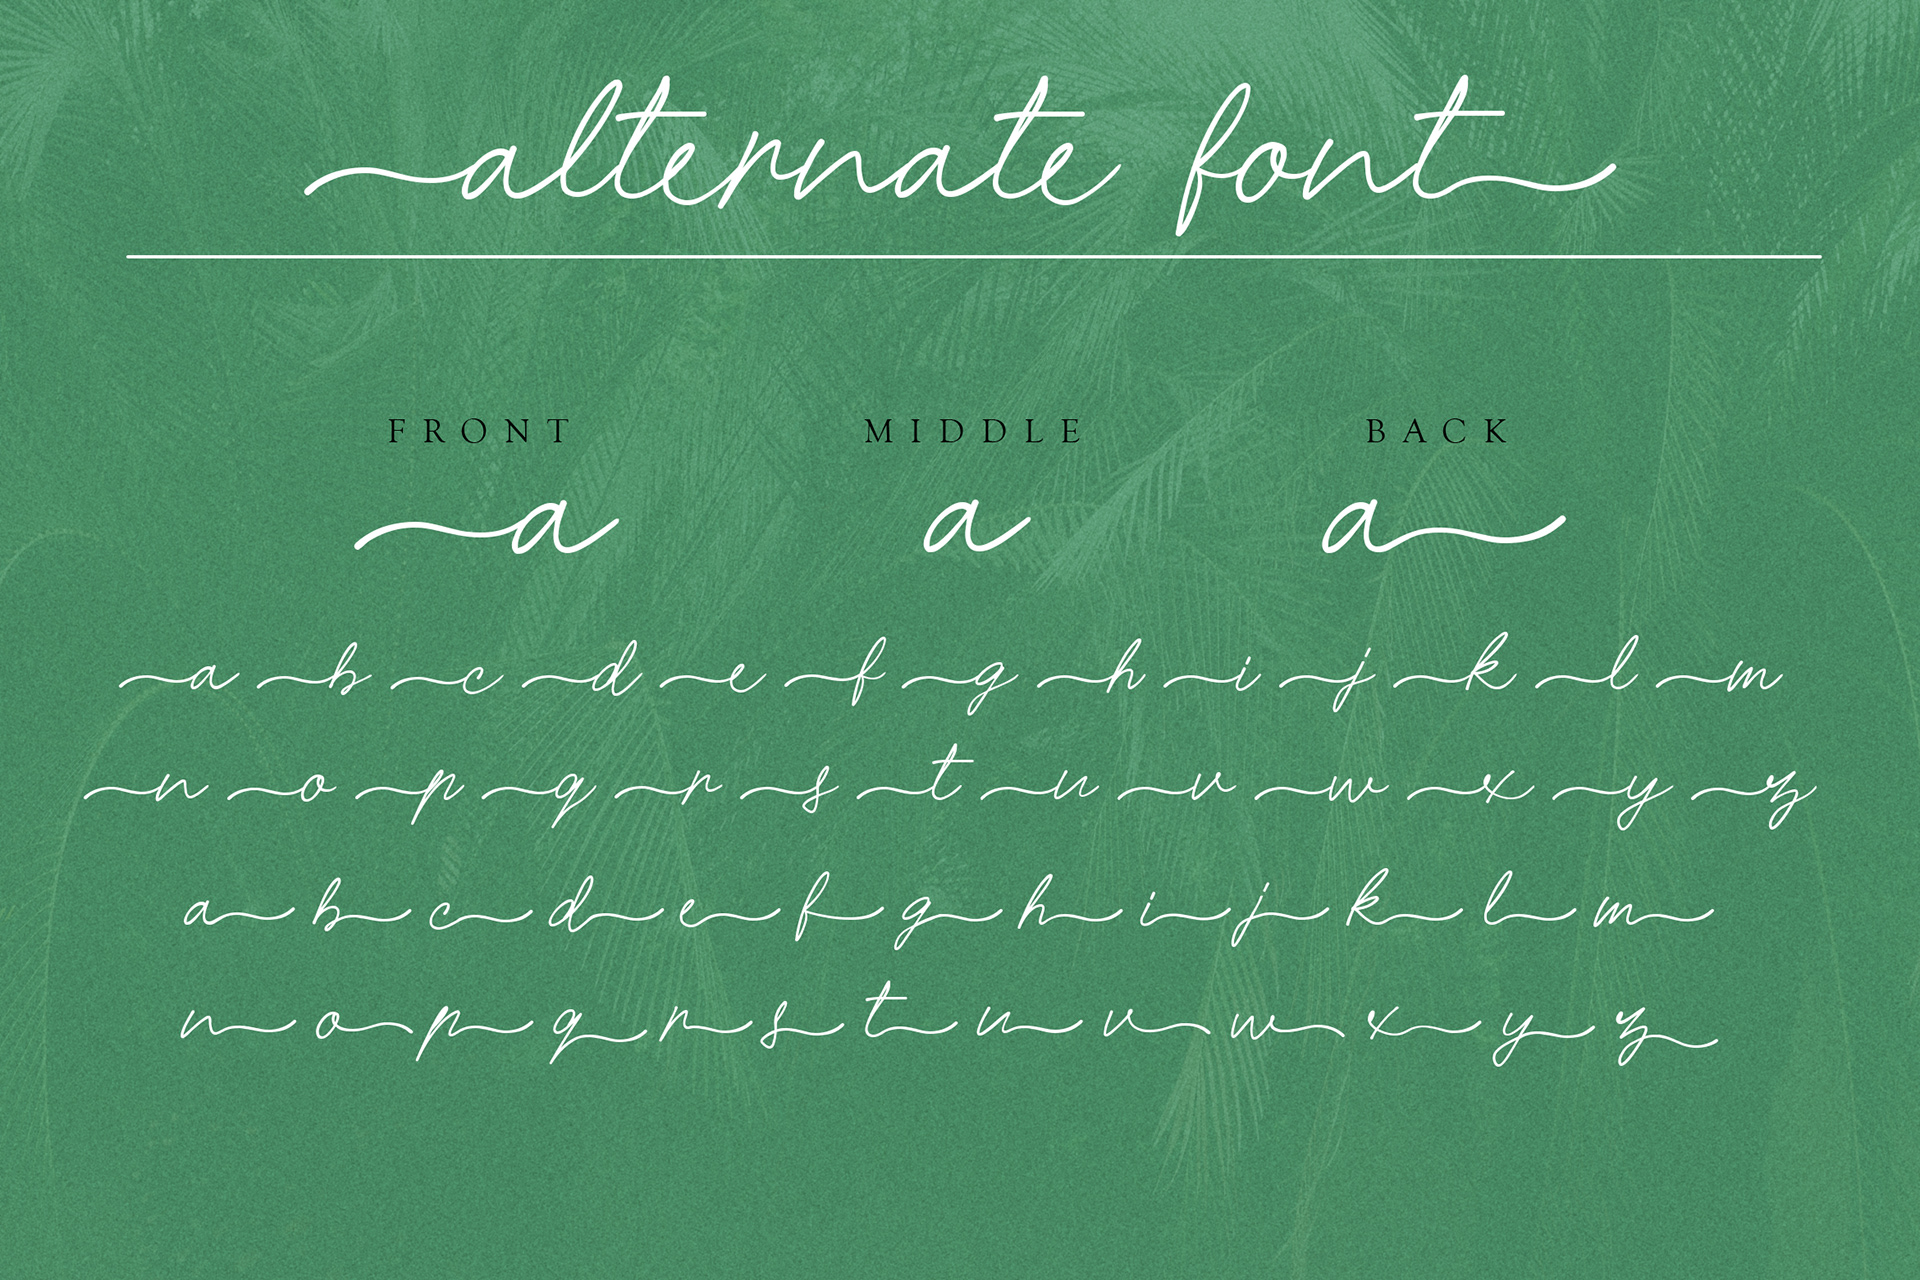 alternate font
FRONT MIDDLE BACK
a a a
a b c d e f g h i j k l m
n o p q r s t u v w x y z
a b c d e f g h i j k l m
n o p q r s t u v w x y z